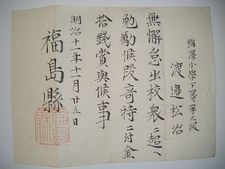 小學下等第三級
渡邉松治
無懈怠出校衆ニ超ヘ
勉勵候段奇特ニ付金
拾錢賞與候事
明治十一年十一月廿五日
福島縣